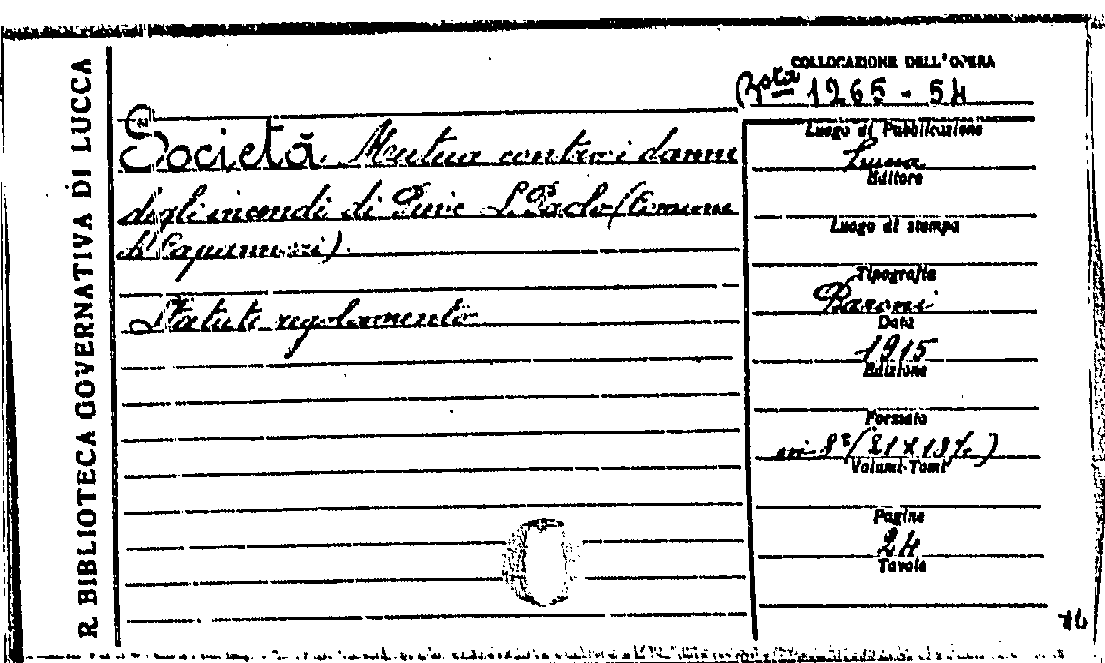 R BIBLIOTECA GOVERNATIVA DI LUCCA
COLLOCAZIONE DELL'OPERA
Bsta 1265 - 54
Società Mutua contro i danni
degli incendi di Pieve S. Paolo (Comune
di Capannori).
Statuto regolamento
Luogo di Pubblicazione
Lucca
Editore
Luogo di stampa
Tipografia
Baroni
Data
1915
Edizione
Formato
in 8°
Volumi-Tomi
Pagine
24
Tavole